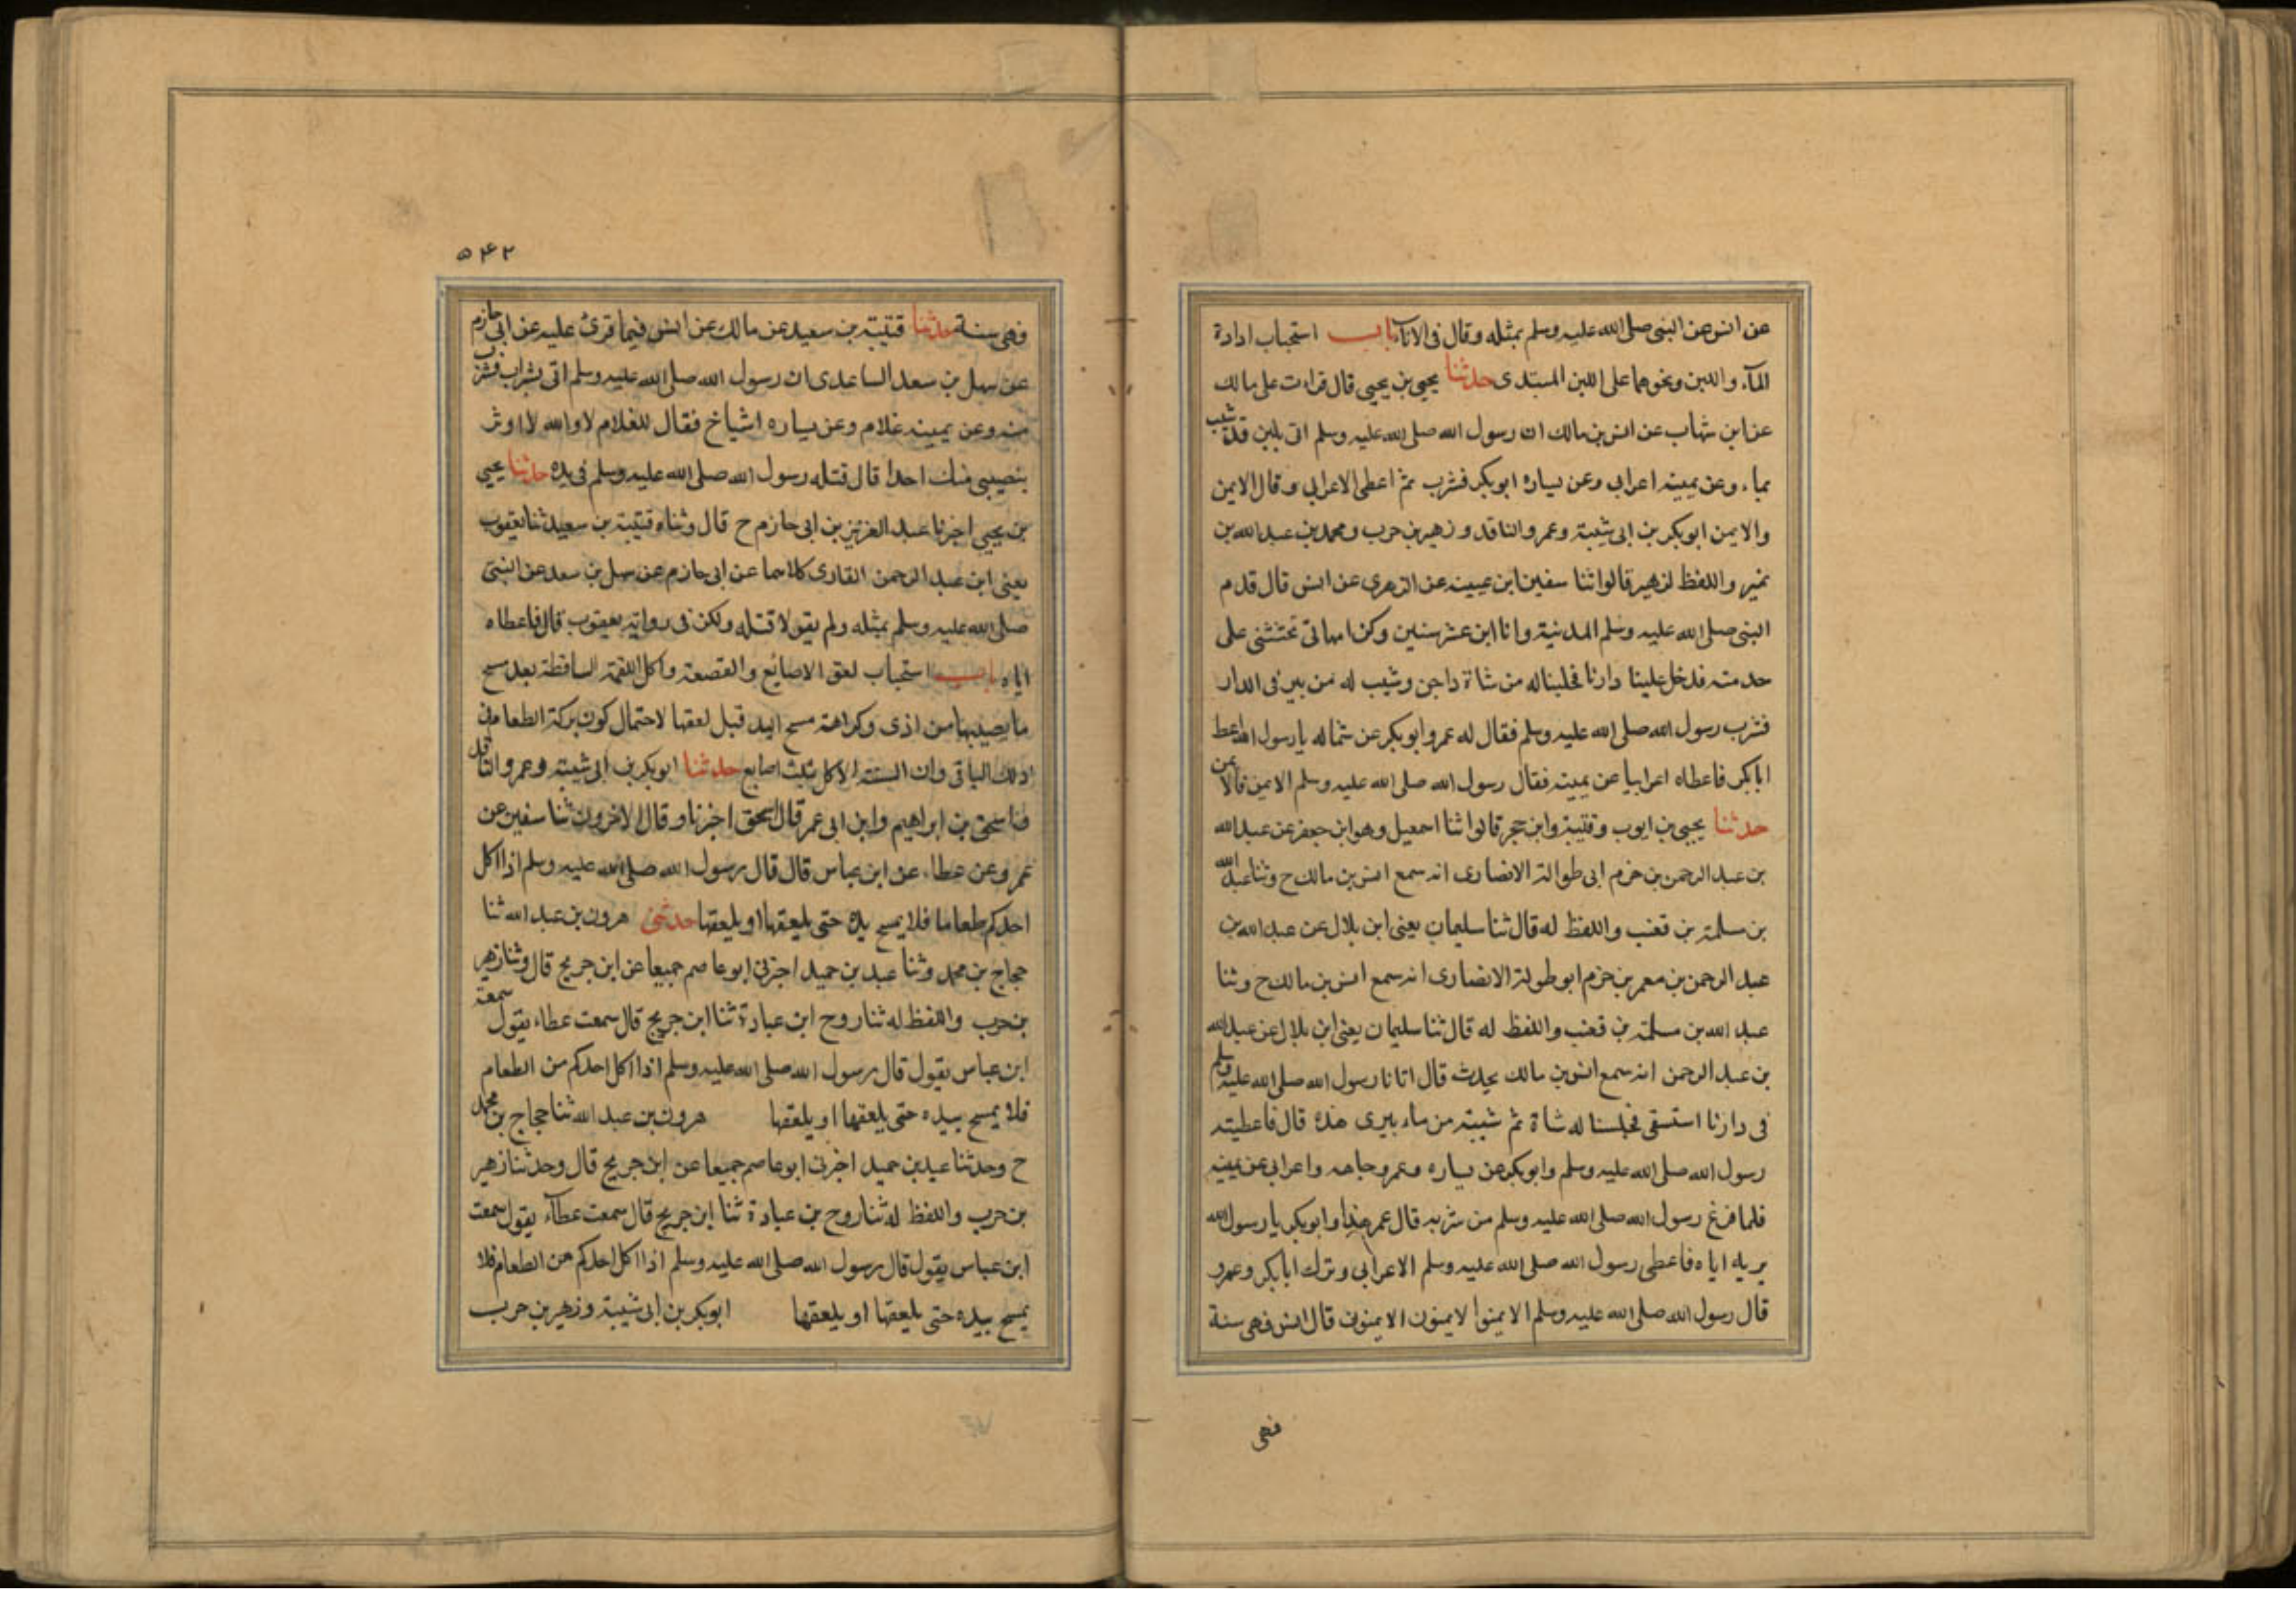 عن انس عن النبى صلى الله عليه وسلم بمثله وقال فى الاناء باب استحباب ادارة
المآء واللبن ونحوهما على اللبن المبتدى حدثنا يحيى بن يحيى قال قراءت على مالك
عن ابن شهاب عن انس بن مالك ان رسول الله صلى الله عليه وسلم اتى بلبن قد شيب
بماء وعن يمينه اعرابى وعن يساره ابوبكر فشرب ثم اعطى الاعرابى وقال الايمن
والايمن ابوبكر بن ابى شيبة وعمرو الناقد وزهير بن حرب ومحمد بن عبد الله بن
نمير واللفظ لزهير قالوا ثنا سفين ابن عيينه عن الزهرى عن انس قال قدم
النبى صلى الله عليه وسلم المدينة وانا ابن عشر سنين وكن امهاتى تحتثنى على
خدمته فدخل علينا دارنا فحلبنا له من شاة داجن وشيب له من بير فى الدار
فشرب رسول الله صلى الله عليه وسلم فقال له عمر وابوبكر عن شماله يا رسول الله اعط
ابابكر فاعطاه اعرابيا عن يمينه فقال رسول الله صلى الله عليه وسلم الايمن فالايمن
حدثنا يحيى بن ايوب وقتيبة وابن حجر قالوا ثنا اسمعيل وهو ابن جعفر عن عبد الله
بن عبد الرحمن بن حزم ابى طوالة الانصارى انه سمع انس بن مالك ح وثنا عبد الله
بن سلمة بن قعنب واللفظ له قال ثنا سليمان يعنى ابن بلال عن عبد الله بن
عبد الرحمن بن معمر بن حزم ابو طولة الانصارى انه سمع انس بن مالك ح وثنا
عبد الله بن مسلمة بن قعنب واللفظ له قال ثنا سليمان يعنى ابن بلال عن عبد الله
بن عبد الرحمن انه سمع انس بن مالك يحدث قال اتانا رسول الله صلى الله عليه وسلم
فى دارنا استسقى فحلبنا له شاة ثم شيبته من ماء بيرى هذه قال فاعطيته
رسول الله صلى الله عليه وسلم وابوبكر عن يساره وعمر وجاهه واعرابى عن يمينه
فلما فرغ رسول الله صلى الله عليه وسلم من شربه قال عمر هذا وابوبكر يا رسول الله
يريه اياه فاعطى رسول الله صلى الله عليه وسلم الاعرابى وترك ابابكر وعمر و
قال رسول الله صلى الله عليه وسلم الايمنوا لايمنون الايمنون قال انس فهى سنة
فهى
۵۴۲
فهى سنة حدثنا قتيبة بن سعيد عن مالك عن انس فيما قرئ عليه عن ابى حازم
عن سهل بن سعد الساعدى ان رسول الله صلى الله عليه وسلم اتى بشراب فشرب
منه وعن يمينه غلام وعن يساره اشياخ فقال للغلام لا والله لا اوثر
بنصيبى منك احدا قال فتله رسول الله صلى الله عليه وسلم فى يده حدثنا يحيى
بن يحيى اخبرنا عبد العزيز بن ابى حازم ح قال وثناه قتيبة بن سعيد ثنا يعقوب
يعنى ابن عبد الرحمن القارى كلاهما عن ابى حازم عن سهل بن سعد عن النبى
صلى الله عليه وسلم بمثله ولم يقولا فتله ولكن فى رواية يعقوب قال فاعطاه
اياه باب استحباب لعق الاصابع والقصعة واكل اللقمة الساقطة بعد مسح
ما يصيبها من اذى وكراهة مسح اليد قبل لعقها لاحتمال كون بركة الطعام فى
ذلك الباقى وان السنة الاكل بثلث اصابع حدثنا ابوبكر بن ابى شيبة وعمرو الناقد
واسحق بن ابراهيم وابن ابى عمر قال اسحق اخبرنا وقال الاخرون ثنا سفين عن
عمرو عن عطاء عن ابن عباس قال قال رسول الله صلى الله عليه وسلم اذا اكل
احدكم طعاما فلا يمسح يده حتى يلعقها او يلعقها حدثنى هرون بن عبد الله ثنا
حجاج بن محمد وثنا عبد بن حميد اخبرنى ابو عاصم جميعا عن ابن جريج قال وثنا زهير
بن حرب واللفظ له ثنا روح ابن عبادة ثنا ابن جريج قال سمعت عطاء يقول سمعت
ابن عباس يقول قال رسول الله صلى الله عليه وسلم اذا اكل احدكم من الطعام
فلا يمسح بيده حتى يلعقها او يلعقها هرون بن عبد الله ثنا حجاج بن محمد
ح وحدثنا عبد بن حميد اخبرنى ابو عاصم جميعا عن ابن جريج قال وحدثنا زهير
بن حرب واللفظ له ثنا روح بن عبادة ثنا ابن جريج قال سمعت عطآء يقول سمعت
ابن عباس يقول قال رسول الله صلى الله عليه وسلم اذا اكل احدكم من الطعام فلا
يمسح بيده حتى يلعقها او يلعقها ابوبكر بن ابى شيبة وزهير بن حرب